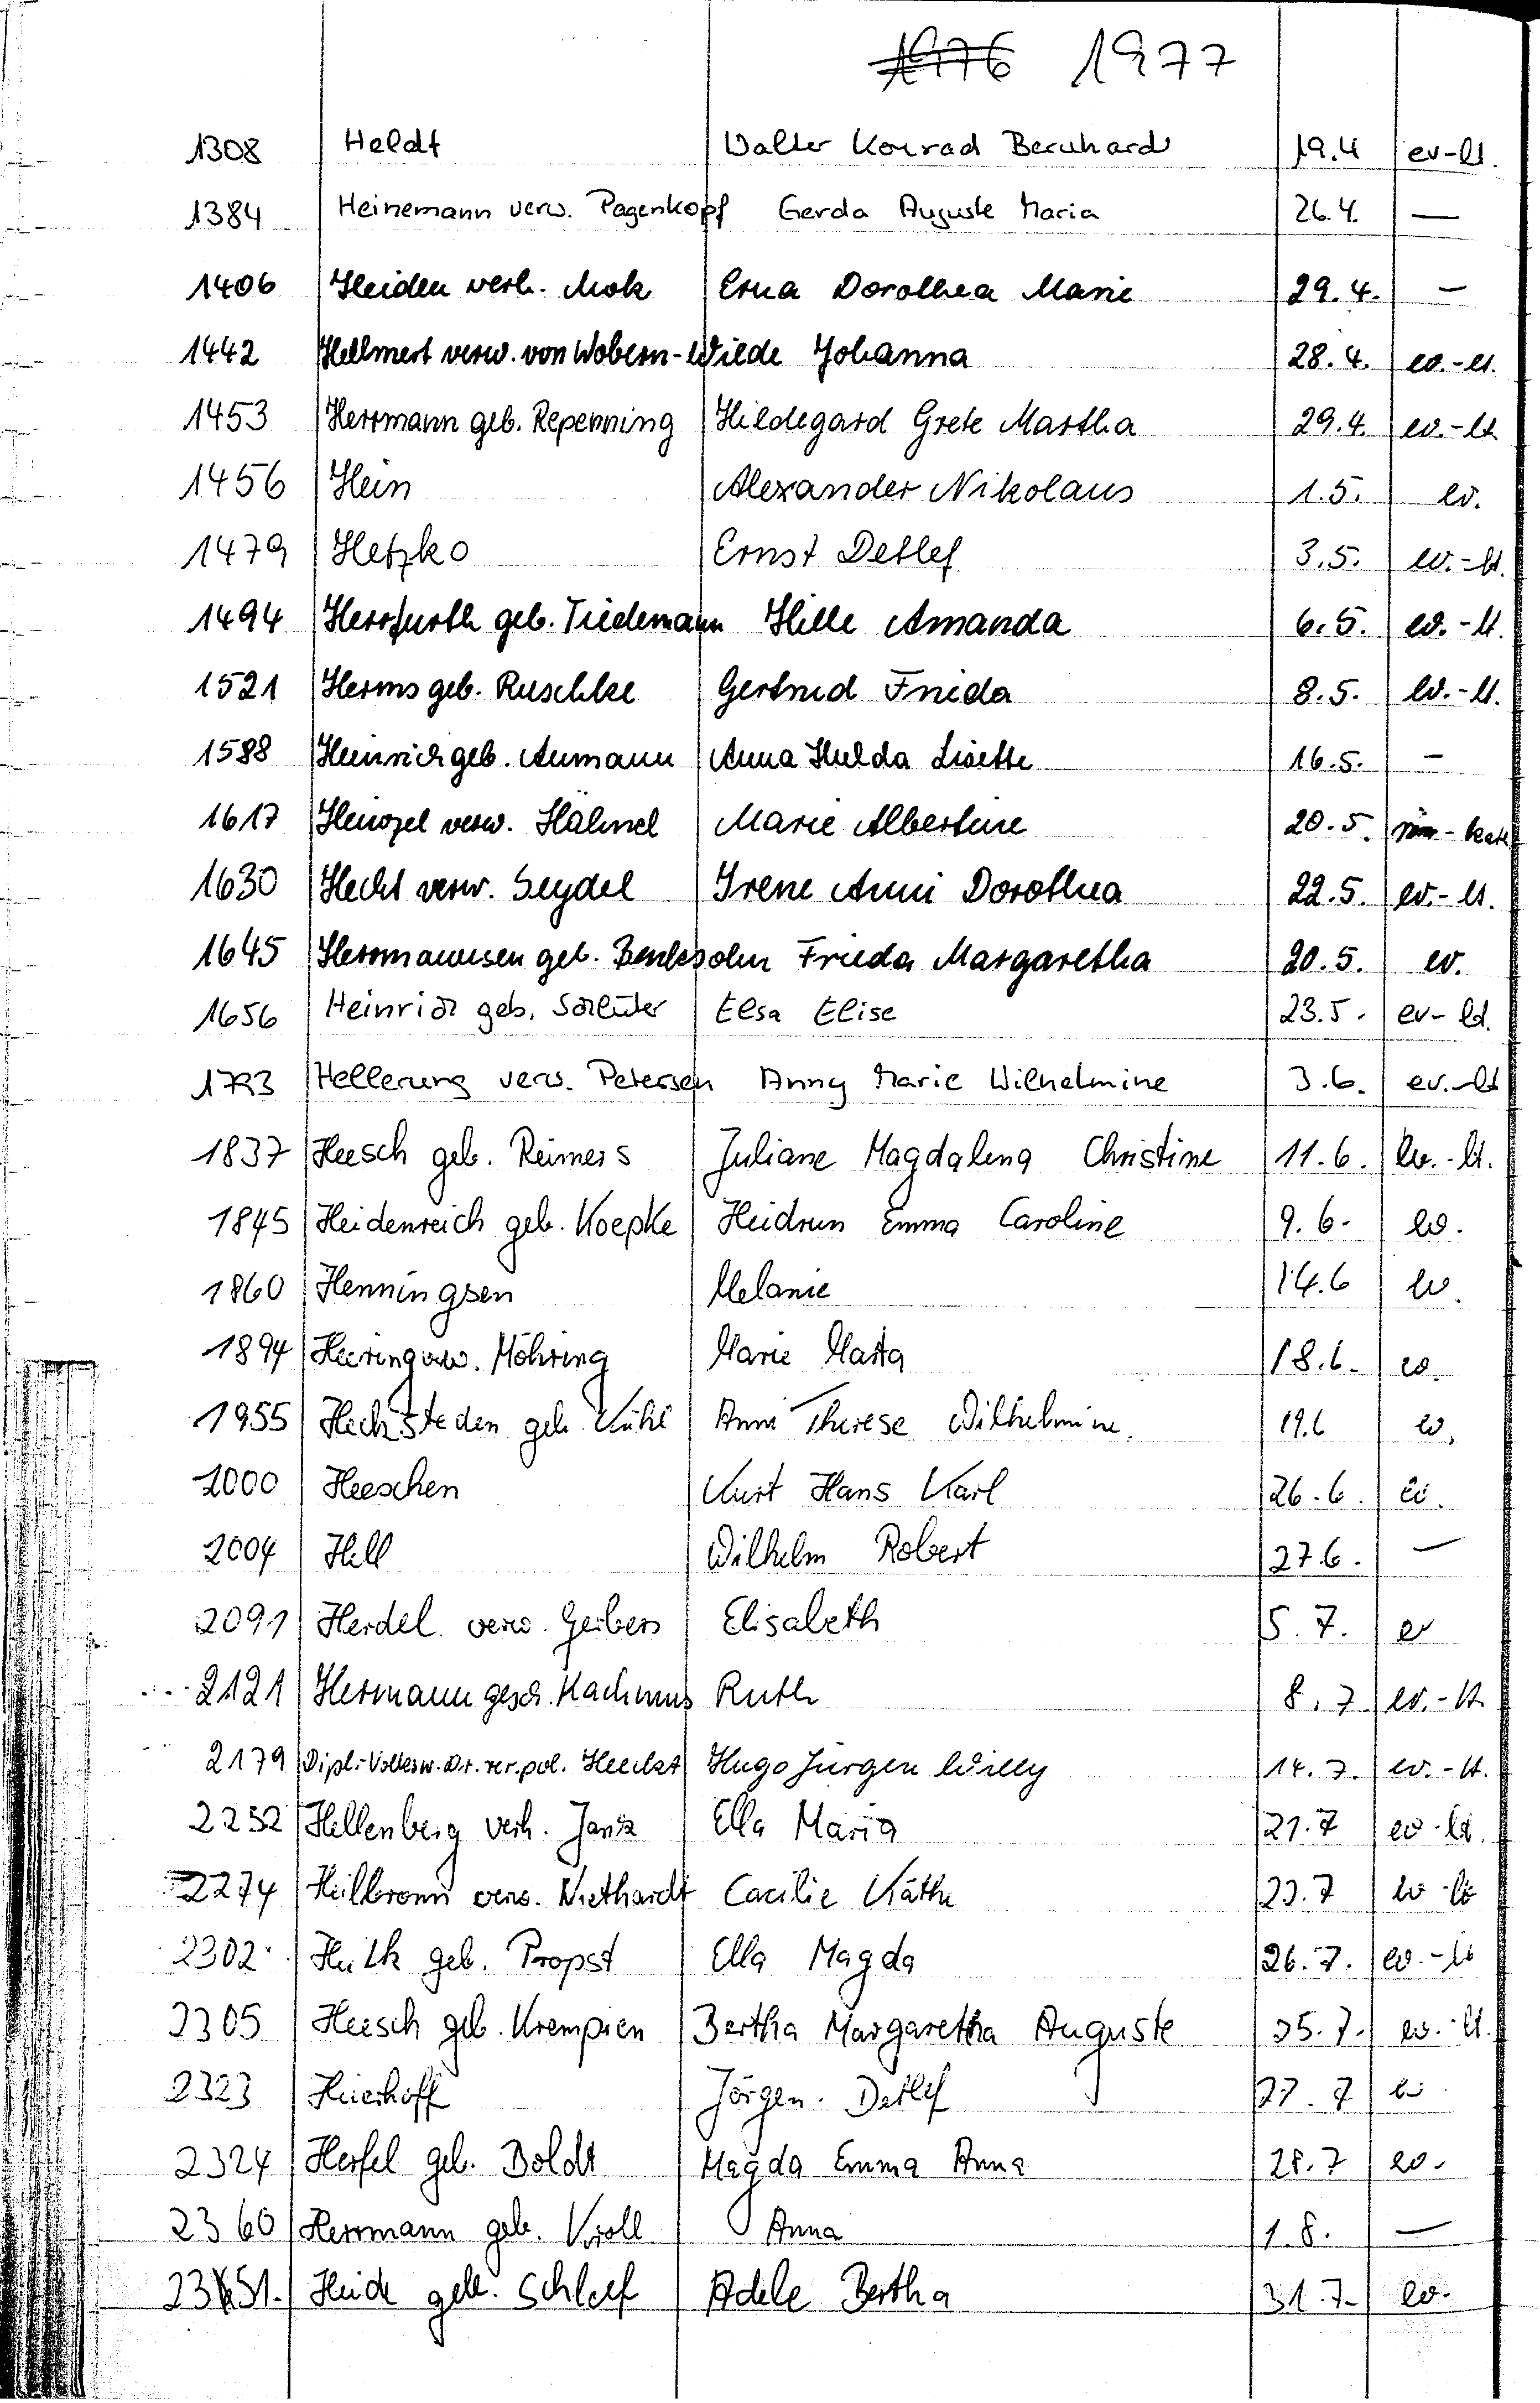 1976 1977
1308 Heldt Walter Konrad Bernhard 19.4 ev-lt.
1384 Heinemann verw. Pagenkopf Gerda Auguste Maria 26.4. —
1406 Heiden verh. Mok Erna Dorothea Marie 29.4. —
1442 Hellmert verw. von Wobern-Wilde Johanna 28.4. ev.-lt.
1453 Herrmann geb. Repenning Hildegard Grete Martha 29.4. ev.-lt
1456 Hein Alexander Nikolaus 1.5. ev.
1479 Hetzko Ernst Detlef 3.5. ev.-lt.
1494 Herrfurth geb. Tiedemann Hille Amanda 6.5. ev.-lt.
1521 Herms geb. Ruschke Gertrud Frieda 8.5. ev.-lt.
1588 Heinrich geb. Aumann Anna Hulda Lisette 16.5. —
1617 verw. Hähnel Marie Albertine 20.5.
1630 Hecht verw. Seydel Irene Anni Dorothea 22.5. ev.-lt.
1645 Hermannsen geb. Frieda Margaretha 20.5. ev.
1656 Heinrich geb. Schlüter Elsa Elise 23.5. ev-lt.
1793 Hellerung verw. Petersen Anny Marie Wilhelmine 3.6. ev.-lt
1837 Heesch geb. Reimers Juliane Magdalena Christine 11.6. ev.-lt.
1845 Heidenreich geb. Koepke Heidrun Emma Caroline 9.6. ev.
1860 Henningsen Melanie 14.6 ev.
1894 Heering verw. Möhring Marie Marta 18.6. ev.
1955 Hecksteden geb. Kühl Anni Therese Wilhelmine. 19.6 ev.
2000 Heeschen Kurt Hans Karl 26.6. ev.
2004 Hell Wilhelm Robert 27.6. —
2091 Herdel verw. Geibers Elisabeth 5.7. ev
2121 Hermann gesch. Ruth 8.7 ev.-lt.
2179 Dipl.-Volksw. Dr. rer. pol. Heeckt Hugo Jürgen Willy 14.7. ev.-lt.
2252 Hellenberg verh. Ella Maria 21.7 ev-lt.
2274 Heilbronn verw. Niethardt Cacilie Käthe 23.7 ev-lt
2302 geb. Propst Ella Magda 26.7. ev.-lt
2305 Heesch geb. Krempien Bertha Margaretha Auguste 25.7. ev.-lt.
2323 Heierhoff Jörgen. Detlef 27.7 ev
2324 Herfel geb. Boldt Magda Emma Anna 28.7 ev.
2360 Herrmann geb. Kroll Anna 1.8. —
2351. Heide geb. Schleef Adele Bertha 31.7. ev.